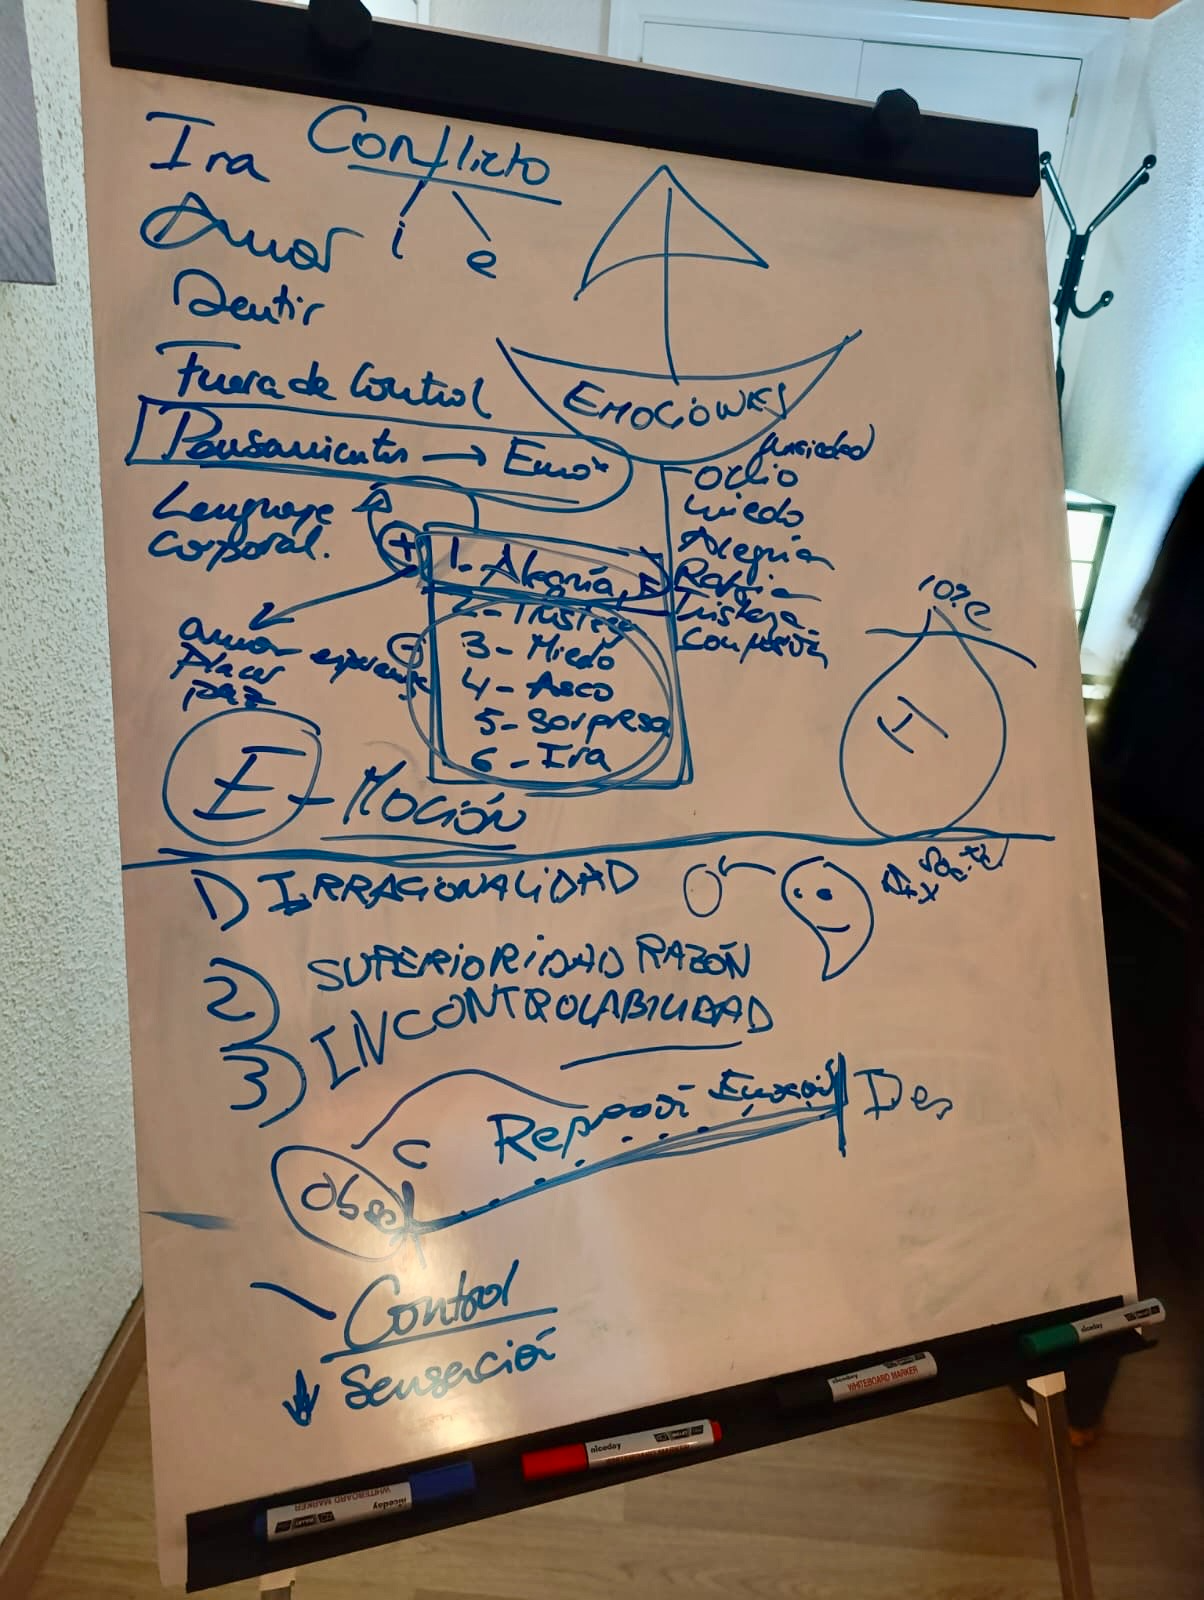 Ira
Conflicto
i e
Amor
Sentir
Fuera de Control
Pensamientos → Emo
EMOCIONES
Ansiedad
Odio
Miedo
Alegría
Rabia
Tristeza
Compasión
Lenguaje
Corporal.
+
1- Alegría
2- Tristeza
3- Miedo
4- Asco
5- Sorpresa
6- Ira
-
amor esperanza
Placer
paz
10% C
I
E-MOCIÓN
1) IRRACIONALIDAD
2) SUPERIORIDAD RAZÓN
3) INCONTROLABILIDAD
C Represión Emoción Des
Obse
Control
↓ Sensación
niceday
WHITEBOARD MARKER
niceday
WHITEBOARD MARKER
niceday
niceday
WHITEBOARD MARKER